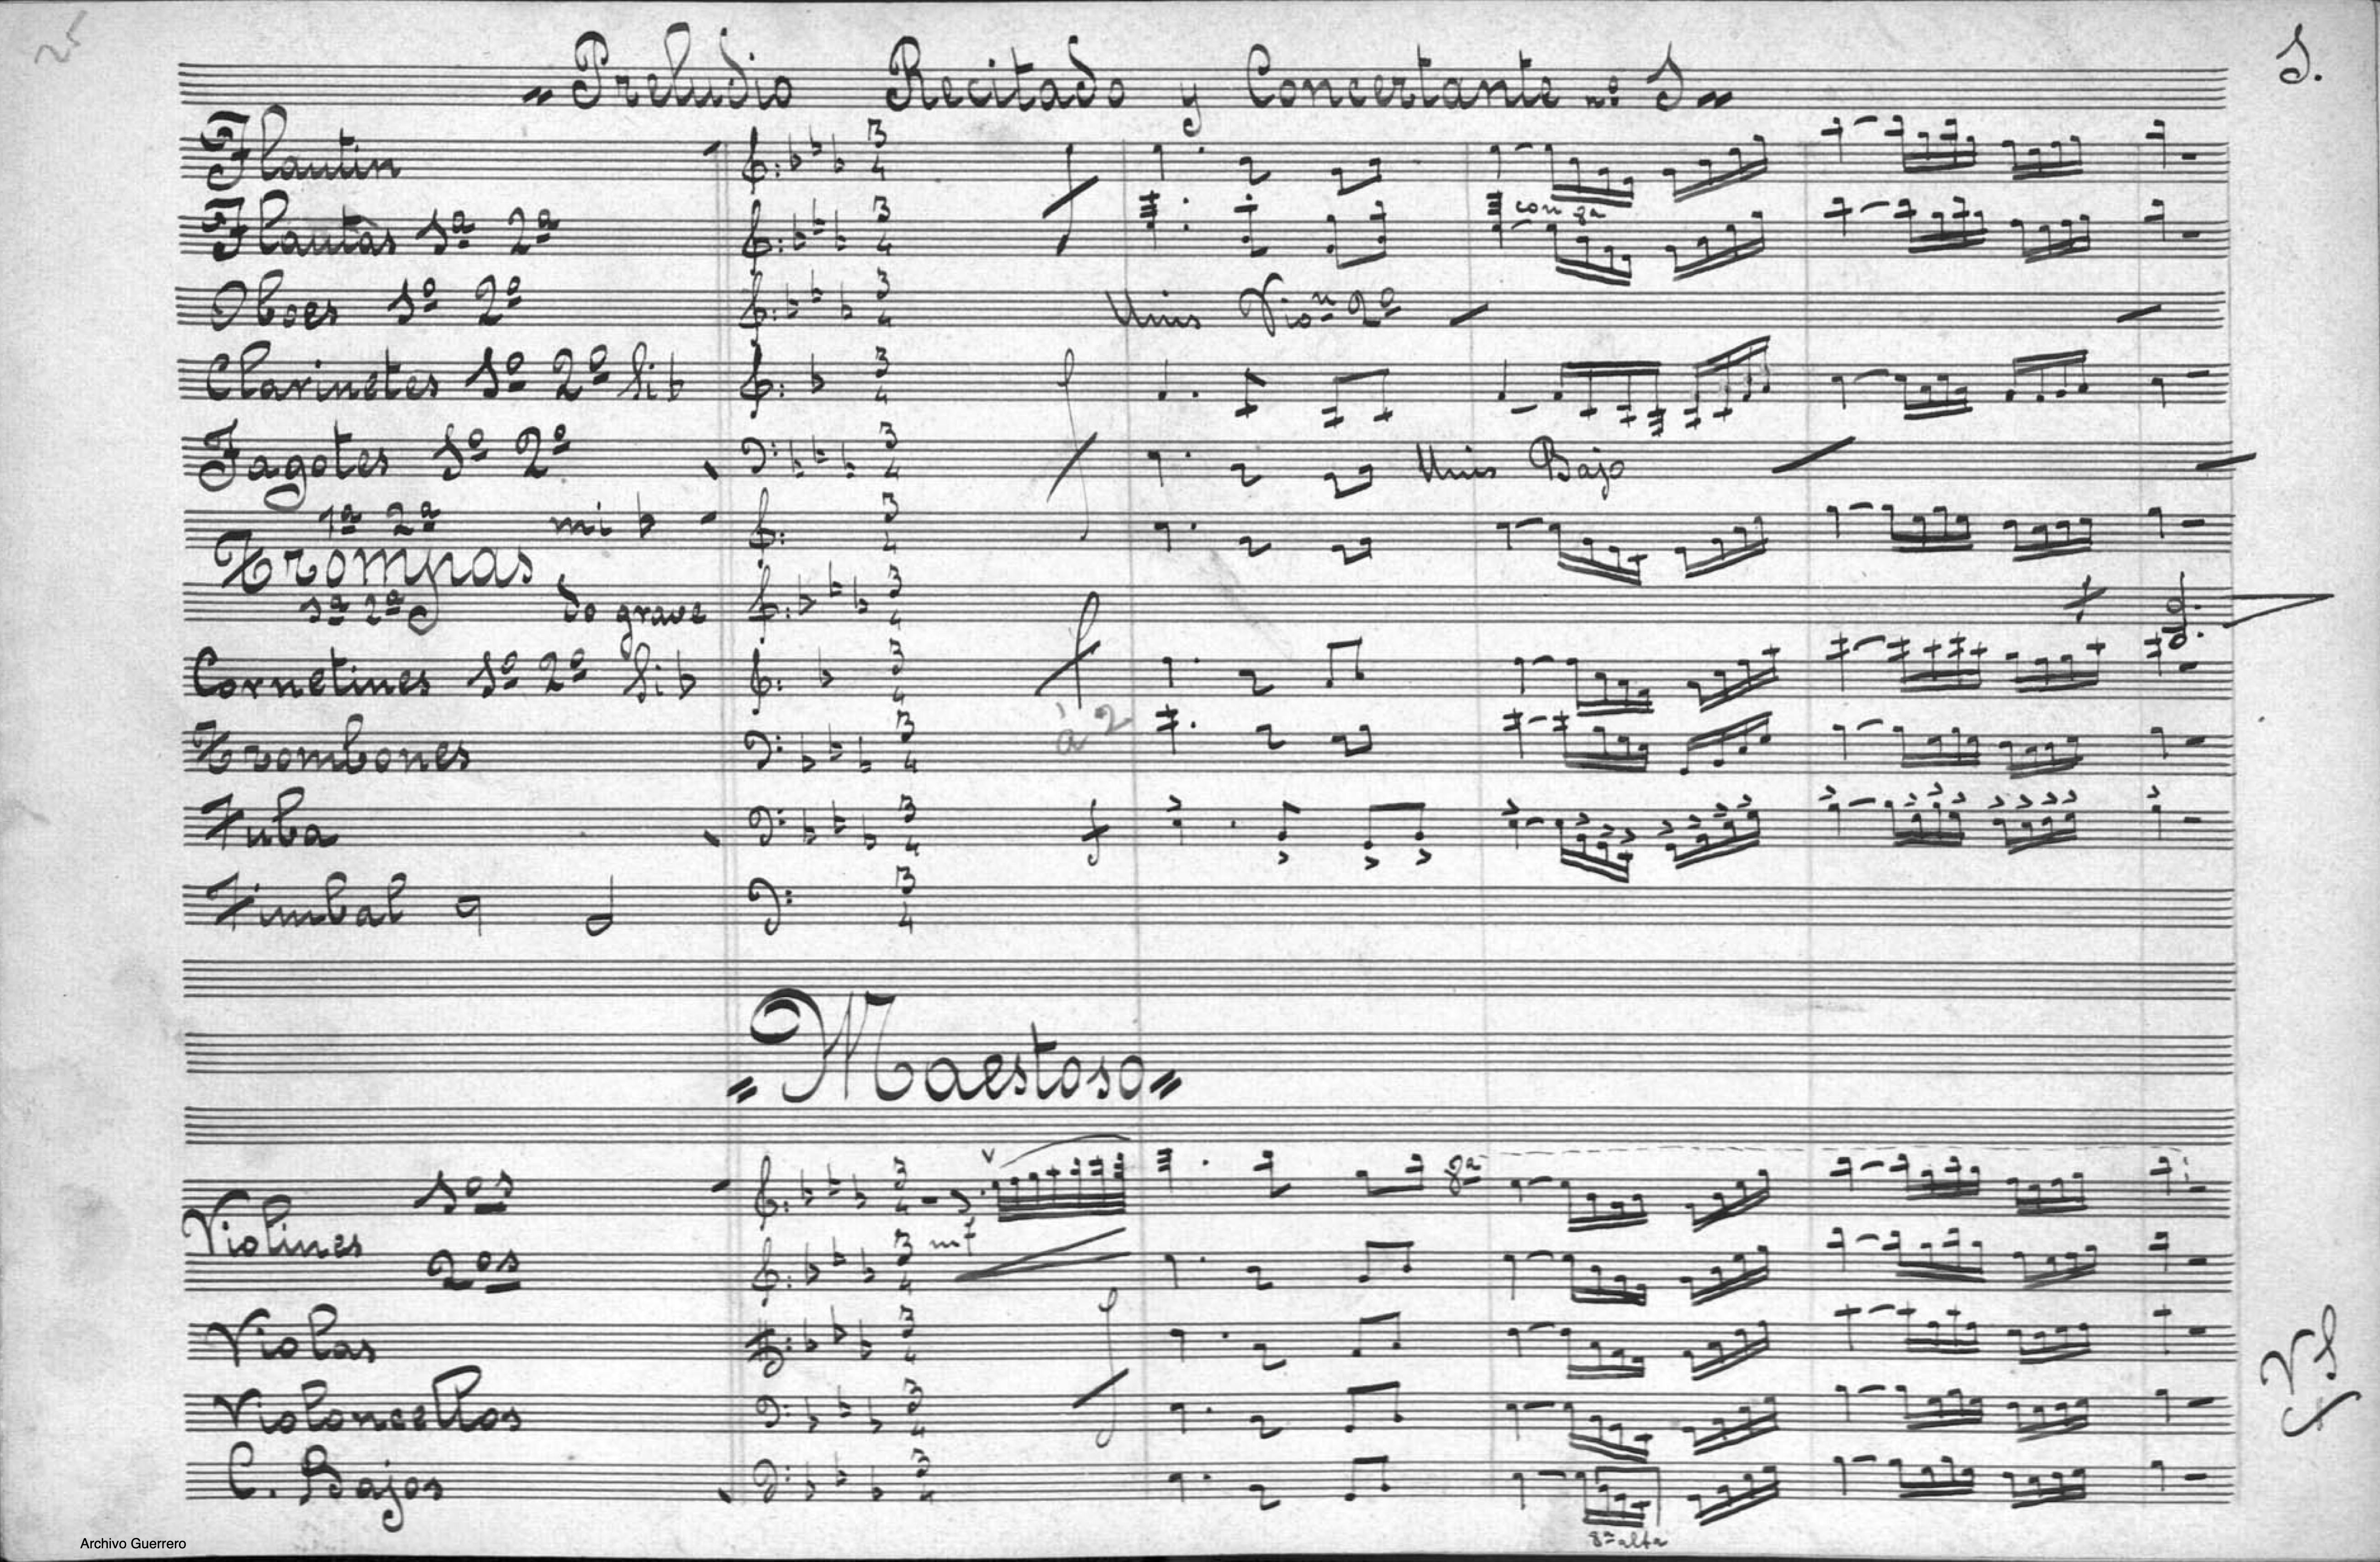 25
1.
" Preludio Recitado y Concertante nº 1 "
Flautin 3 4
Flautas 1ª 2ª 3 4 con 8ª
Oboes 1º 2º 3 4 Unis Vioⁿ 2º
Clarinetes 1º 2º Sib 3 4 f
Fagotes 1º 2º 3 4 f Unis Bajo
1ª 2ª mi b 3 4
Trompas
1ª 2ª do grave 3 4
Cornetines 1º 2º Sib 3 4 f
Trombones 3 4 à 2
Tuba 3 4 f
Timbal 3 4
" Maestoso "
1ºs 3 4 8ª
Violines mf
2ºs 3 4
Violas 3 4
Violoncellos 3 4 f
VS
C. Bajos 3 4
8ª alta
Archivo Guerrero